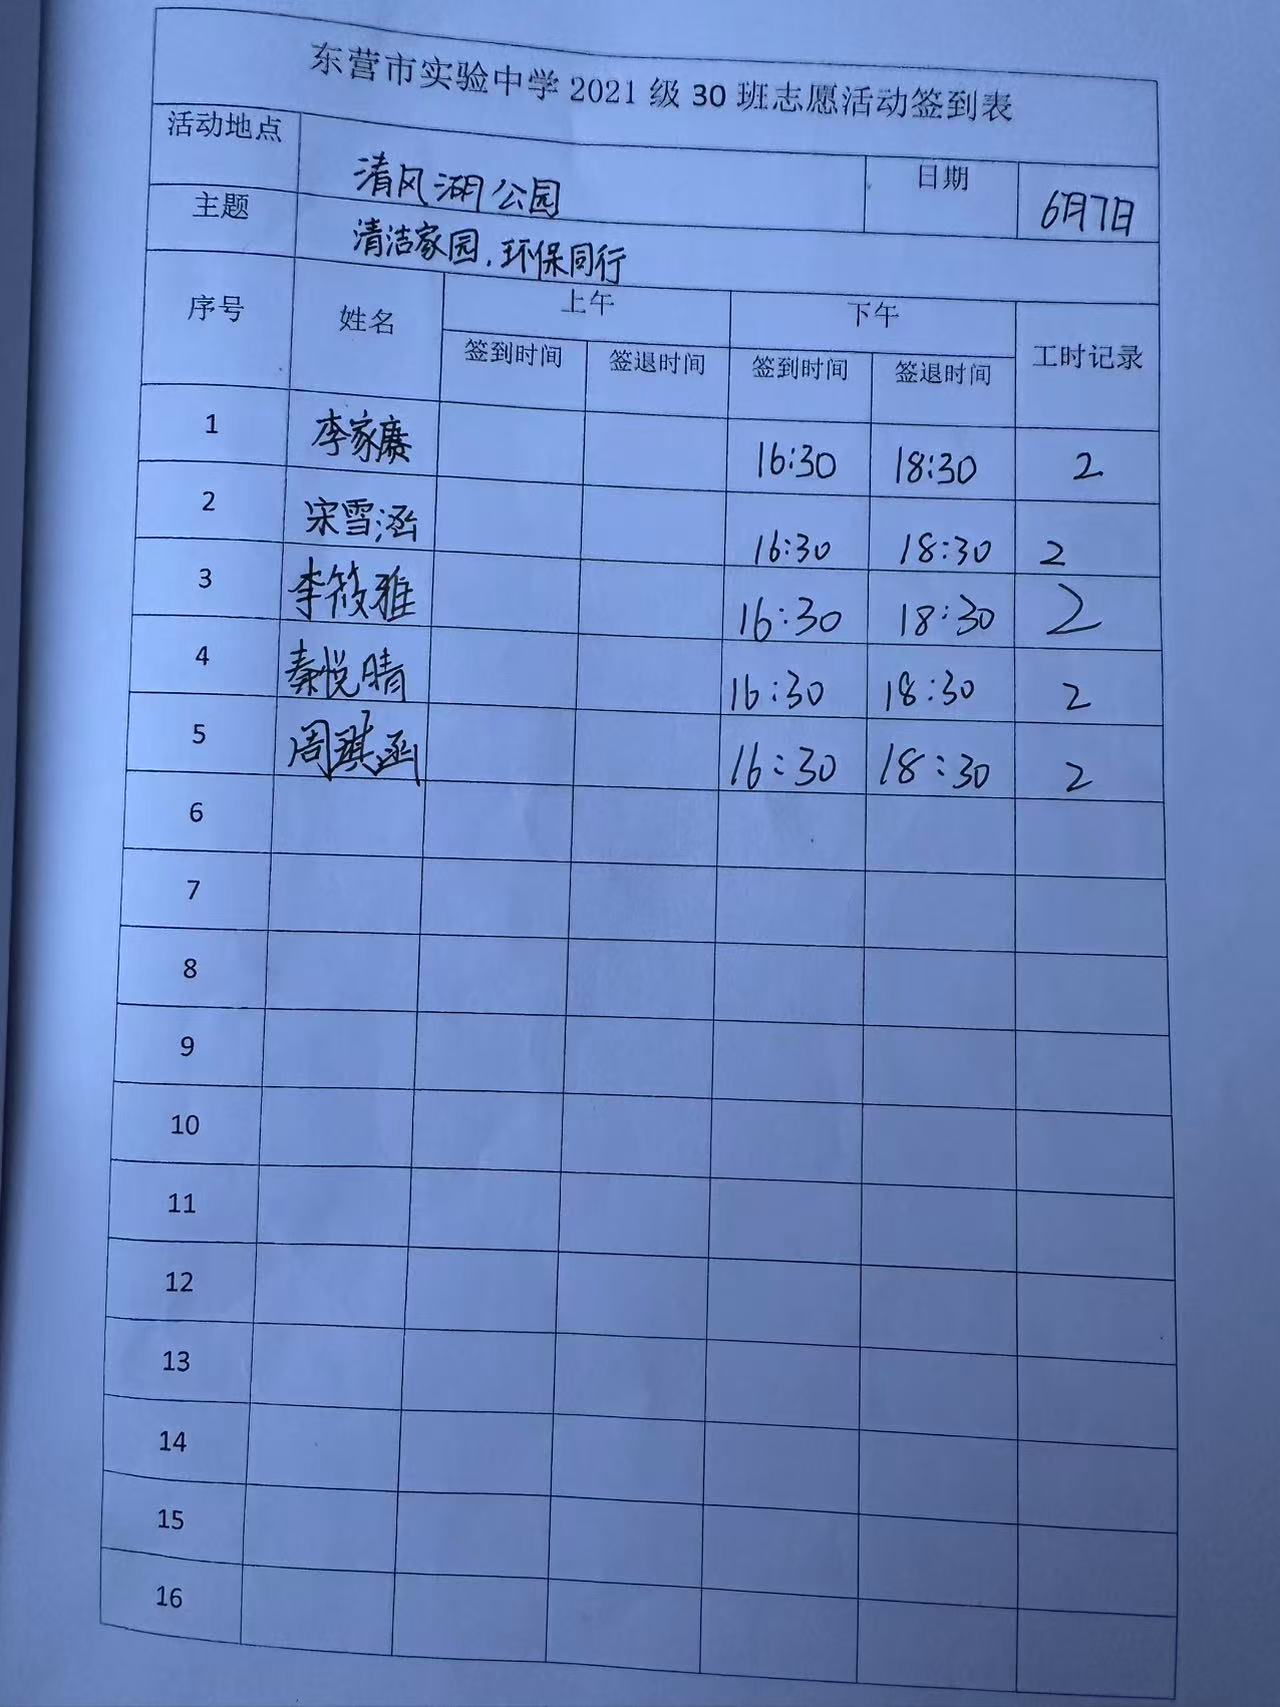 东营市实验中学2021级30班志愿活动签到表
活动地点 清风湖公园 日期 6月7日
主题 清洁家园,环保同行
序号 姓名 上午 下午 工时记录
签到时间 签退时间 签到时间 签退时间
1 李家赓 16:30 18:30 2
2 宋雪涵 16:30 18:30 2
3 李筱雅 16:30 18:30 2
4 秦悦晴 16:30 18:30 2
5 周琪函 16:30 18:30 2
6
7
8
9
10
11
12
13
14
15
16